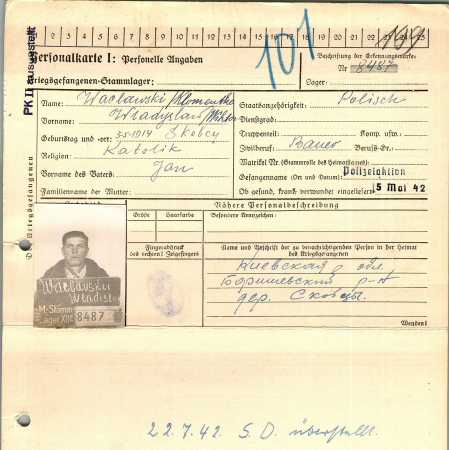 1 2 3 4 5 6 7 8 9 10 11 12 13 14 15 16 17 18 19 20 21 22 23 24 25
101
PK II ausgestellt
Personalkarte I: Personelle Angaben
Kriegsgefangenen-Stammlager:
Beschriftung der Erkennungsmarke
Nr. 8487
Lager:
Des Kriegsgefangenen
Name: Wacławski /
Vorname: Władysław /
Geburtstag und -ort: 3.5.1914 Skobcy
Religion: Katolik
Vorname des Vaters: Jan
Familienname der Mutter:
Staatsangehörigkeit: Polisch
Dienstgrad:
Truppenteil: Komp. usw.:
Zivilberuf: Bauer Berufs-Gr.:
Matrikel Nr. (Stammrolle des Heimatstaates):
Gefangennahme (Ort und Datum): Polizeiaktion
Ob gesund, krank, verwundet eingeliefert: 5 Mai 42
Nähere Personalbeschreibung
Größe Haarfarbe Besondere Kennzeichen:
Fingerabdruck
des rechten Zeigefingers
Name und Anschrift der zu benachrichtigenden Person in der Heimat
des Kriegsgefangenen
Киевская обл.
р-н
дер.
Wenden!
Wacławskii
Władisła
M-Stamm
Lager XIIF 8487
22.7.42. S.D. überstellt.